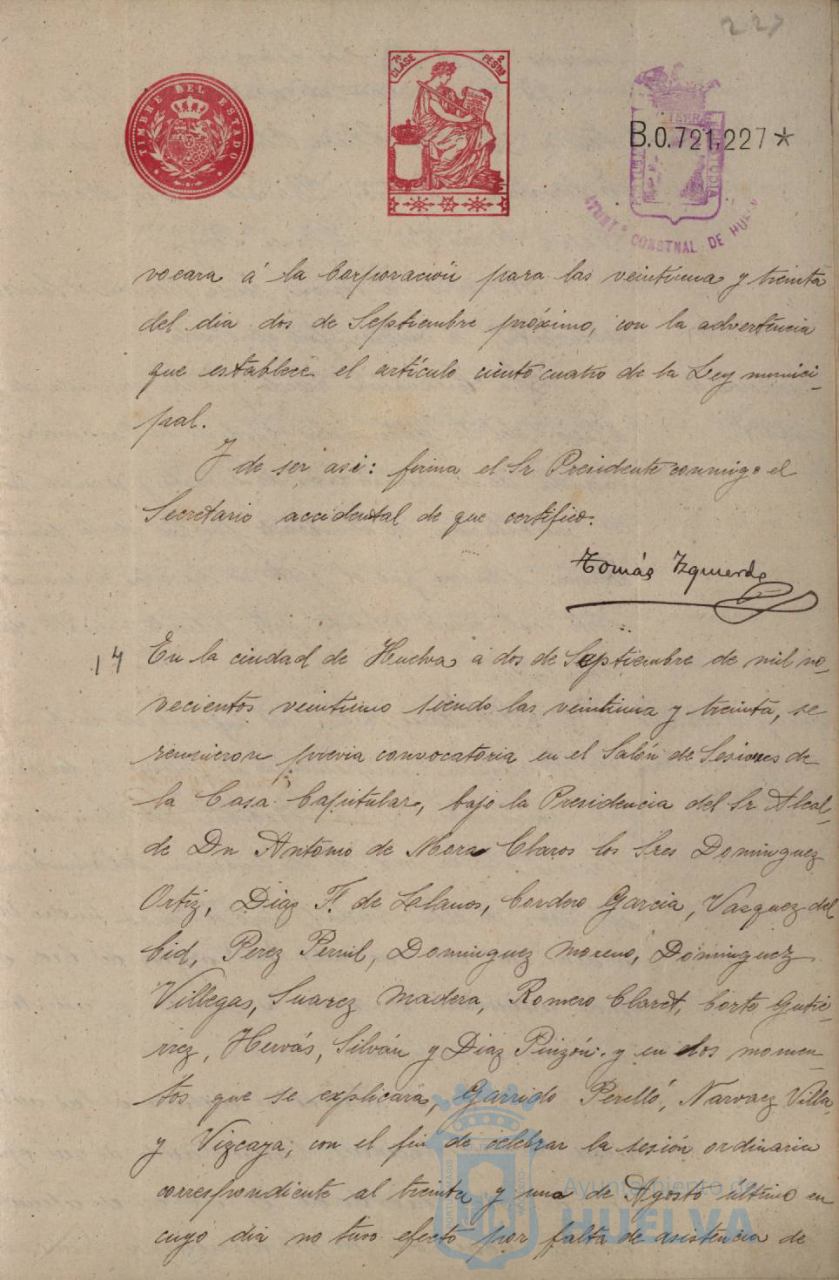 227
TIMBRE DEL ESTADO
7ª CLASE 2 PESTAS
B.0.721,227*
AYUNTº CONSTNAL DE HUELVA
vocará á la Corporación para las veintiuna y treinta
del dia dos de Septiembre próximo, con la advertencia
que establece el artículo ciento cuatro de la Ley munici-
pal.
Y de ser asi: firma el Sr Presidente conmigo el
Secretario accidental de que certifico.
Tomás Izquierdo
14
En la ciudad de Huelva á dos de Septiembre de mil no-
vecientos veintiuno siendo las veintiuna y treinta, se
reunieron previa convocatoria en el Salón de Sesiones de
la Casa Capitular, bajo la Presidencia del Sr Alcal-
de Dn Antonio de Mora Claros los Sres Dominguez
Ortiz, Diaz F. de Lelanos, Cordero Garcia, Vasquez del
Cid, Perez Pernil, Dominguez Moreno, Dominguez
Villegas, Suarez Madera, Romero Claret, Corto Gutie-
rrez, Hervás, Silván y Diaz Pinzón. y en los momen-
tos que se explicará, Garrido Perelló, Narvaez Villa,
y Vizcaya; con el fin de celebrar la sesión ordinaria
correspondiente al treinta y una de Agosto último en
cuyo dia no tuvo efecto por falta de asistencia de
Ayuntamiento de
HUELVA